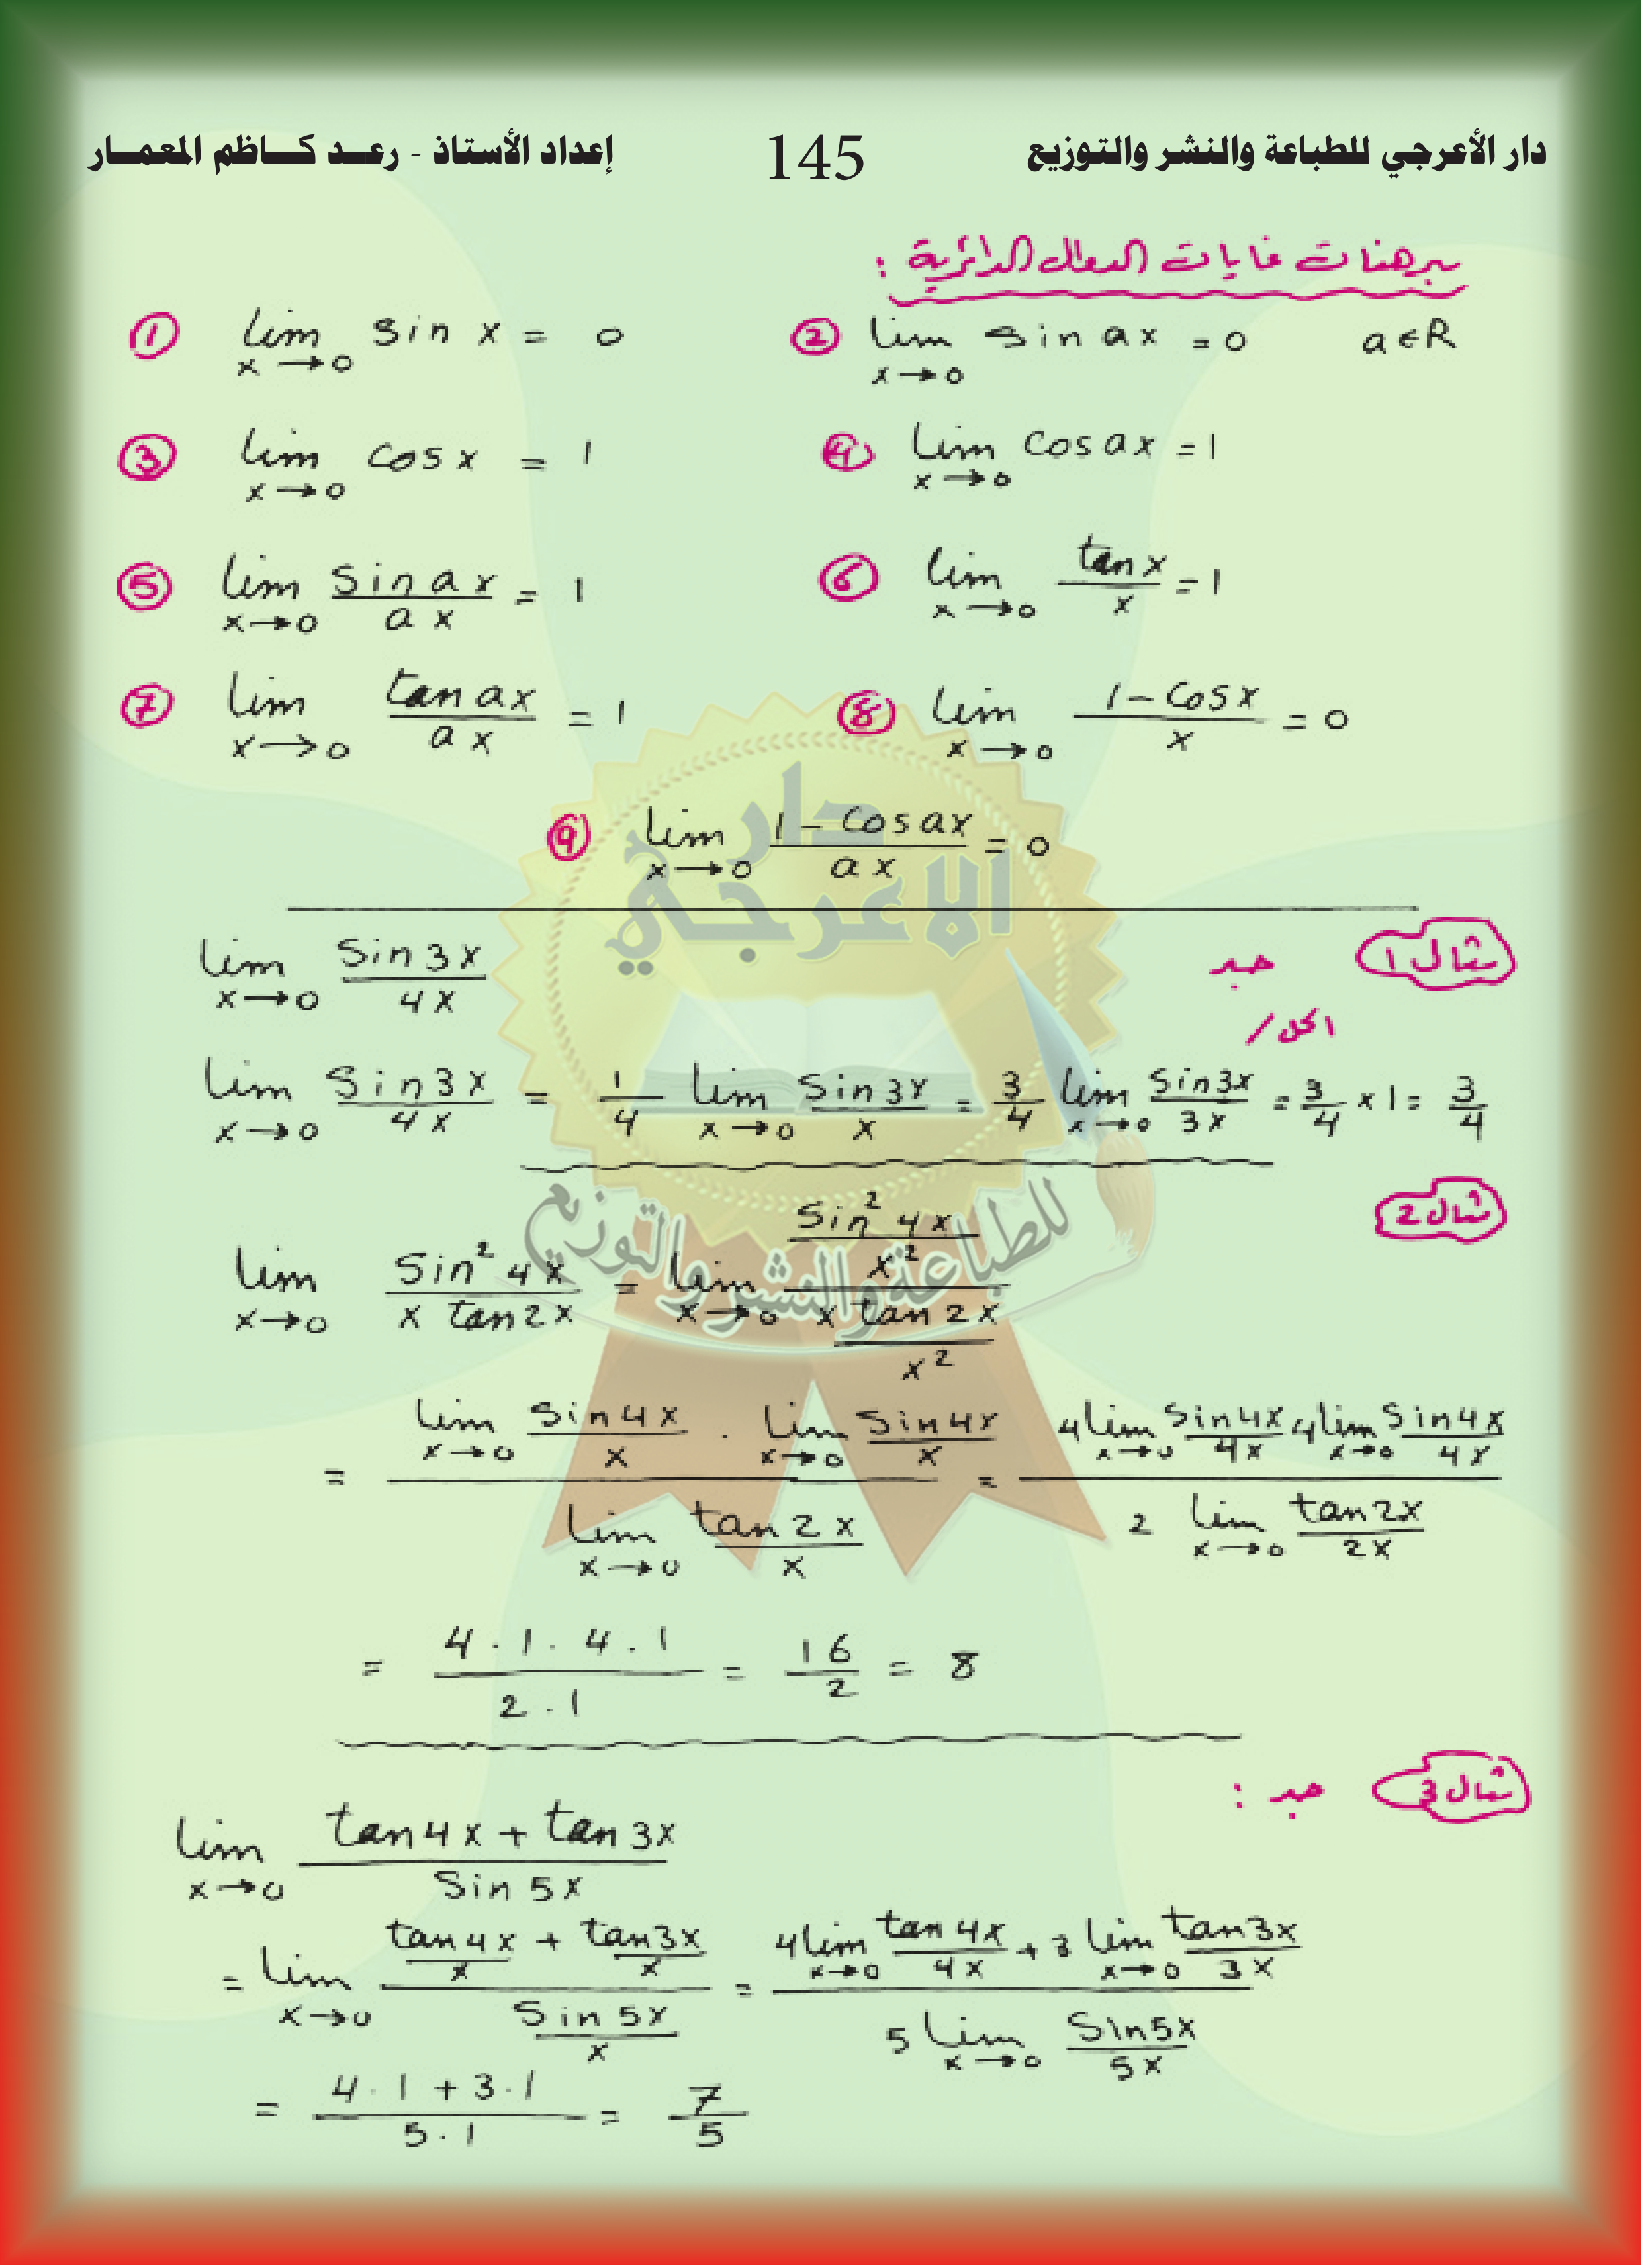 دار الأعرجي للطباعة والنشر والتوزيع 145 إعداد الأستاذ - رعد كاظم المعمار
برهنات غايات الدوال الدائرية :
① lim x→0 sin x = 0 ② lim x→0 sin ax = 0 a ∈ R
③ lim x→0 cos x = 1 ④ lim x→0 cos ax = 1
⑤ lim x→0 sin ax / ax = 1 ⑥ lim x→0 tan x / x = 1
⑦ lim x→0 tan ax / ax = 1 ⑧ lim x→0 (1 - cos x) / x = 0
⑨ lim x→0 (1 - cos ax) / ax = 0
مثال 1 جد lim x→0 sin 3x / 4x
الحل /
lim x→0 sin 3x / 4x = 1/4 lim x→0 sin 3x / x = 3/4 lim x→0 sin 3x / 3x = 3/4 × 1 = 3/4
مثال 2
lim x→0 sin² 4x / (x tan 2x) = lim x→0 (sin² 4x / x²) / (x tan 2x / x²)
= (lim x→0 sin 4x / x . lim x→0 sin 4x / x) / (lim x→0 tan 2x / x) = (4 lim x→0 sin 4x / 4x 4 lim x→0 sin 4x / 4x) / (2 lim x→0 tan 2x / 2x)
= (4 . 1 . 4 . 1) / (2 . 1) = 16/2 = 8
مثال 3 جد :
lim x→0 (tan 4x + tan 3x) / sin 5x
= lim x→0 (tan 4x / x + tan 3x / x) / (sin 5x / x) = (4 lim x→0 tan 4x / 4x + 3 lim x→0 tan 3x / 3x) / (5 lim x→0 sin 5x / 5x)
= (4 . 1 + 3 . 1) / (5 . 1) = 7/5
دار
الاعرجي
للطباعة والنشر والتوزيع